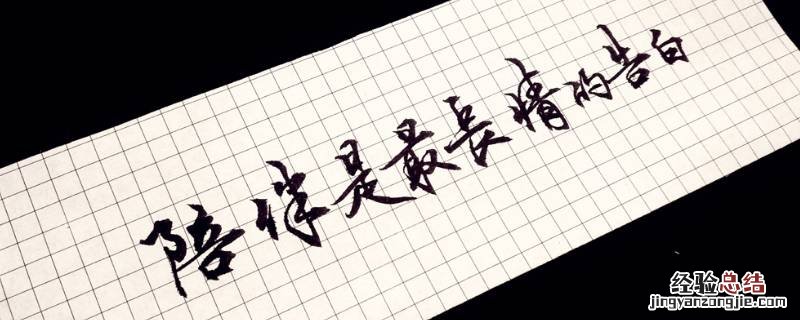 陪伴是最長情的告白
经验总结
jingyanzongjie.com